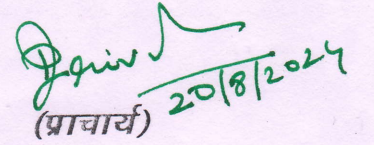 20/8/2024
(प्राचार्य)